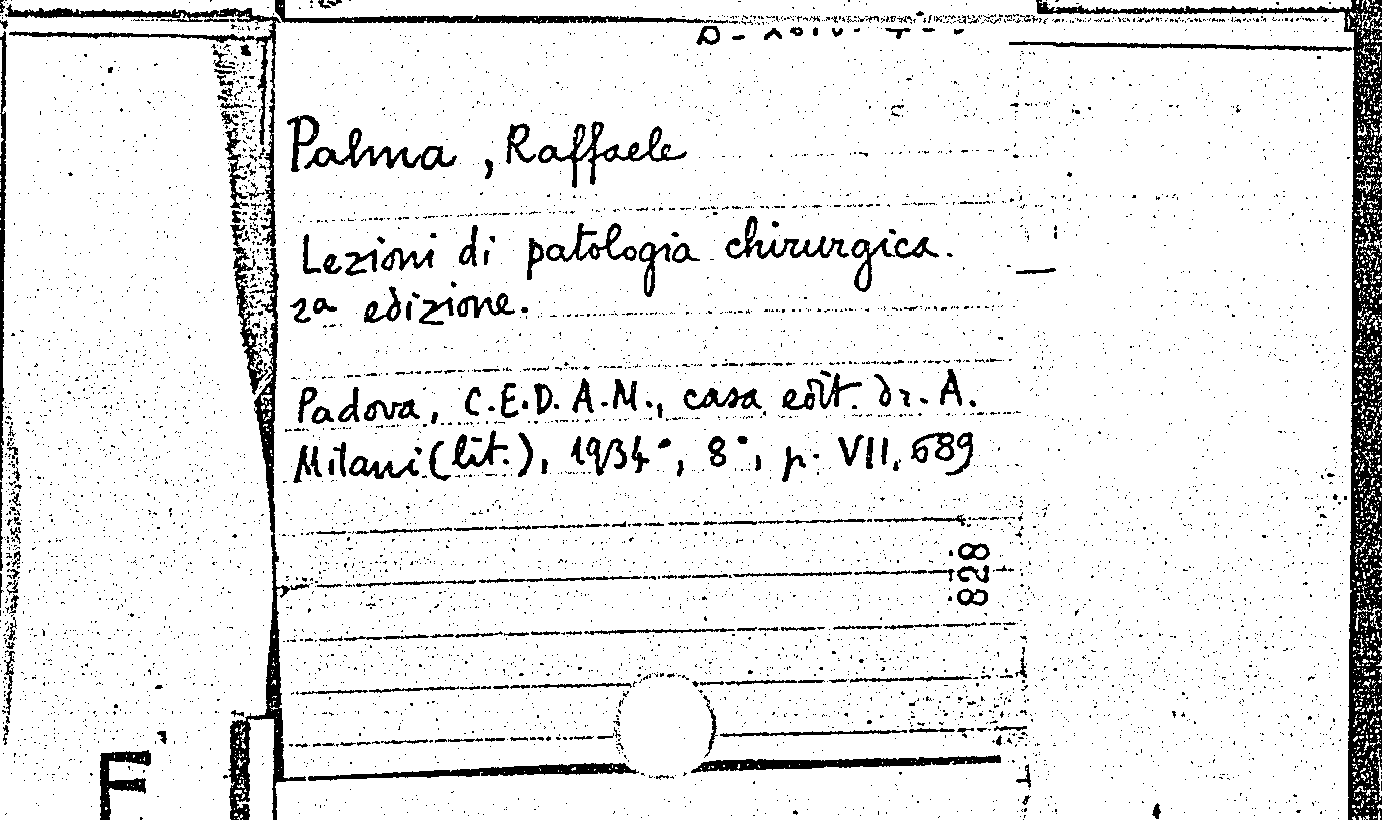 Palma, Raffaele
Lezioni di patologia chirurgica.
2ª edizione.
Padova, C.E.D.A.M., casa edit. dr. A.
Milani (lit.), 1934°, 8°, p. VII, 689
828